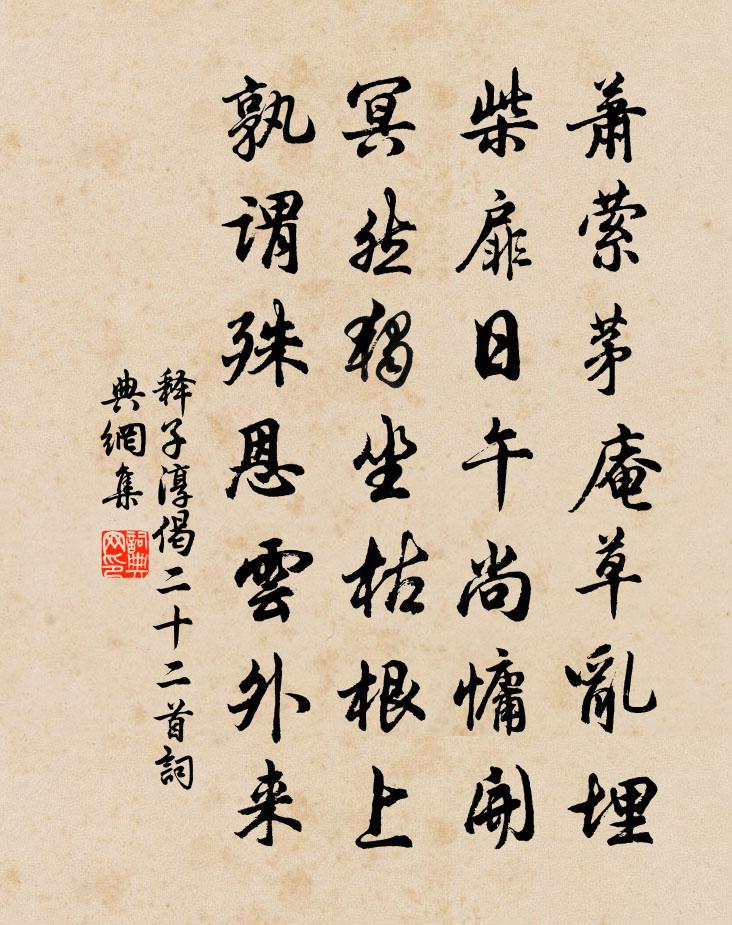 蕭縈茅庵草亂埋
柴扉日午尚慵開
冥然獨坐枯根上
孰謂殊恩雲外来
释子淳偈二十二首詞
典網集
詞典
网印